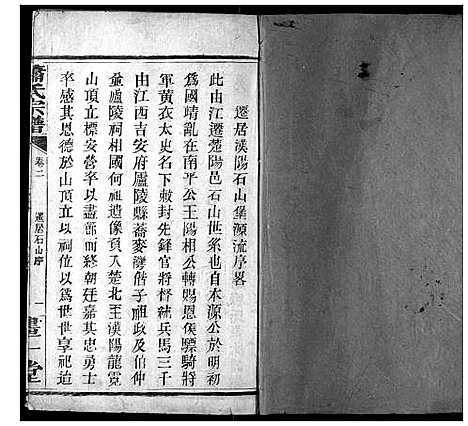 遷居漢陽石山堡源流序畧
此由江遷楚陽邑石山世系也自木源公於明初
爲國靖亂在南平公王陽相公轉賜恩侯驃騎將
軍黃衣太史名下敕封先鋒官將督統兵馬三千
由江西吉安府廬陵縣喬麥灣偕子祖政及伯仲
並廬陵祠相國何祖遺像頁入楚北王漢陽龍霓
山頂立標安營卒以盡節而終朝廷嘉其忠勇士
卒感其恩德於山頂立以祠位以爲世世享祀迨
蕭氏宗譜
卷二
遷居石山序
一
堂